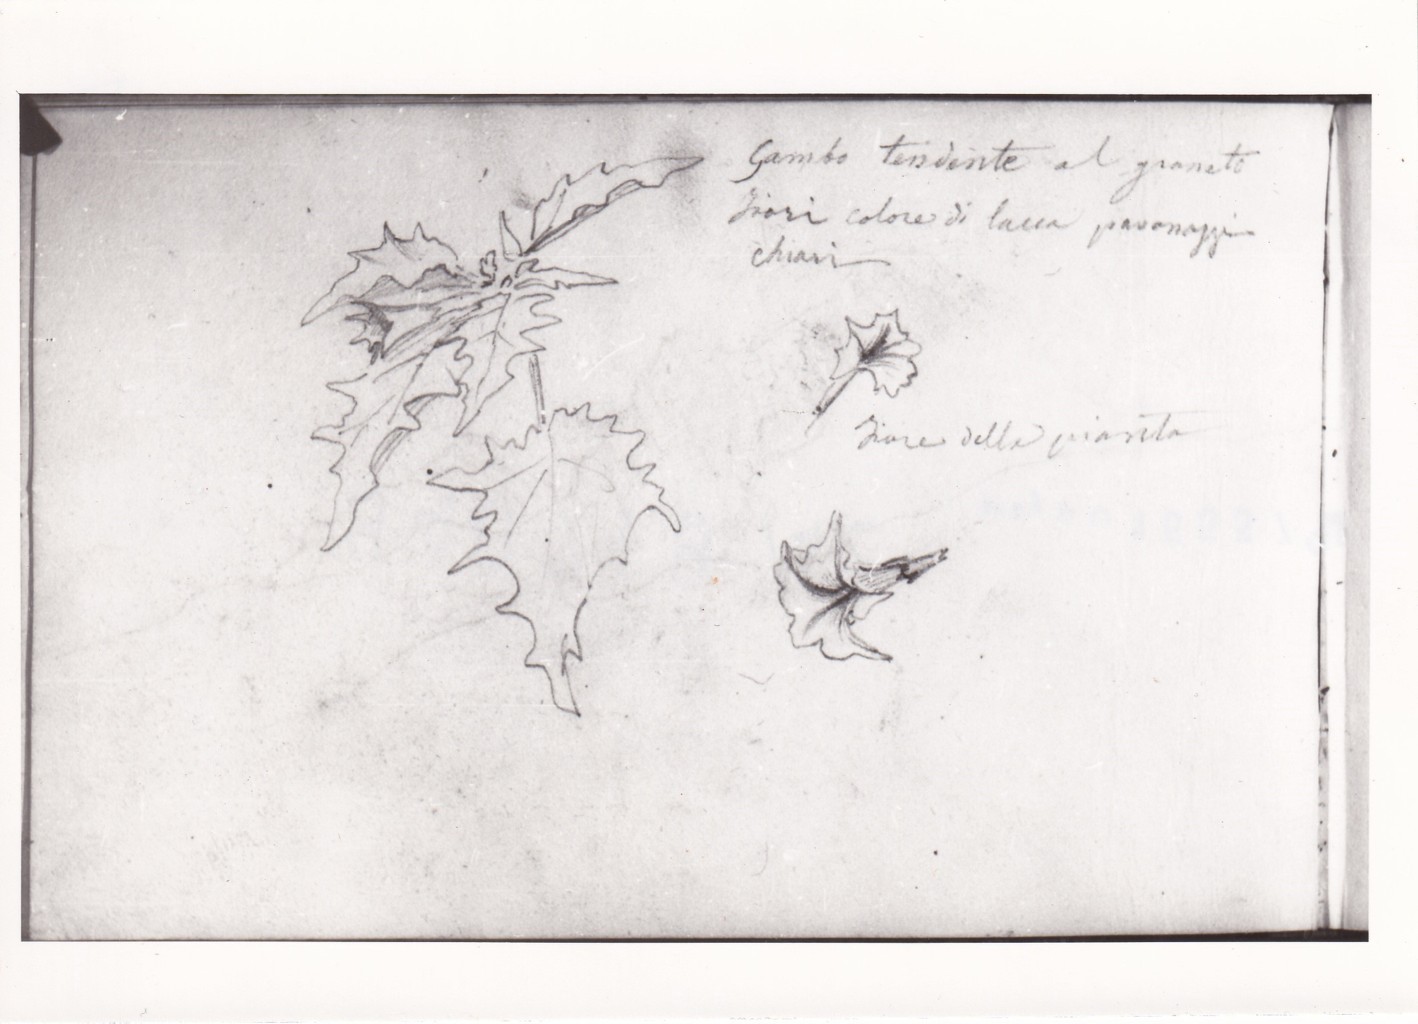 Gambo tendente al granato
Fiori colore di lacca pavonazzi
chiari
Fiore della pianta